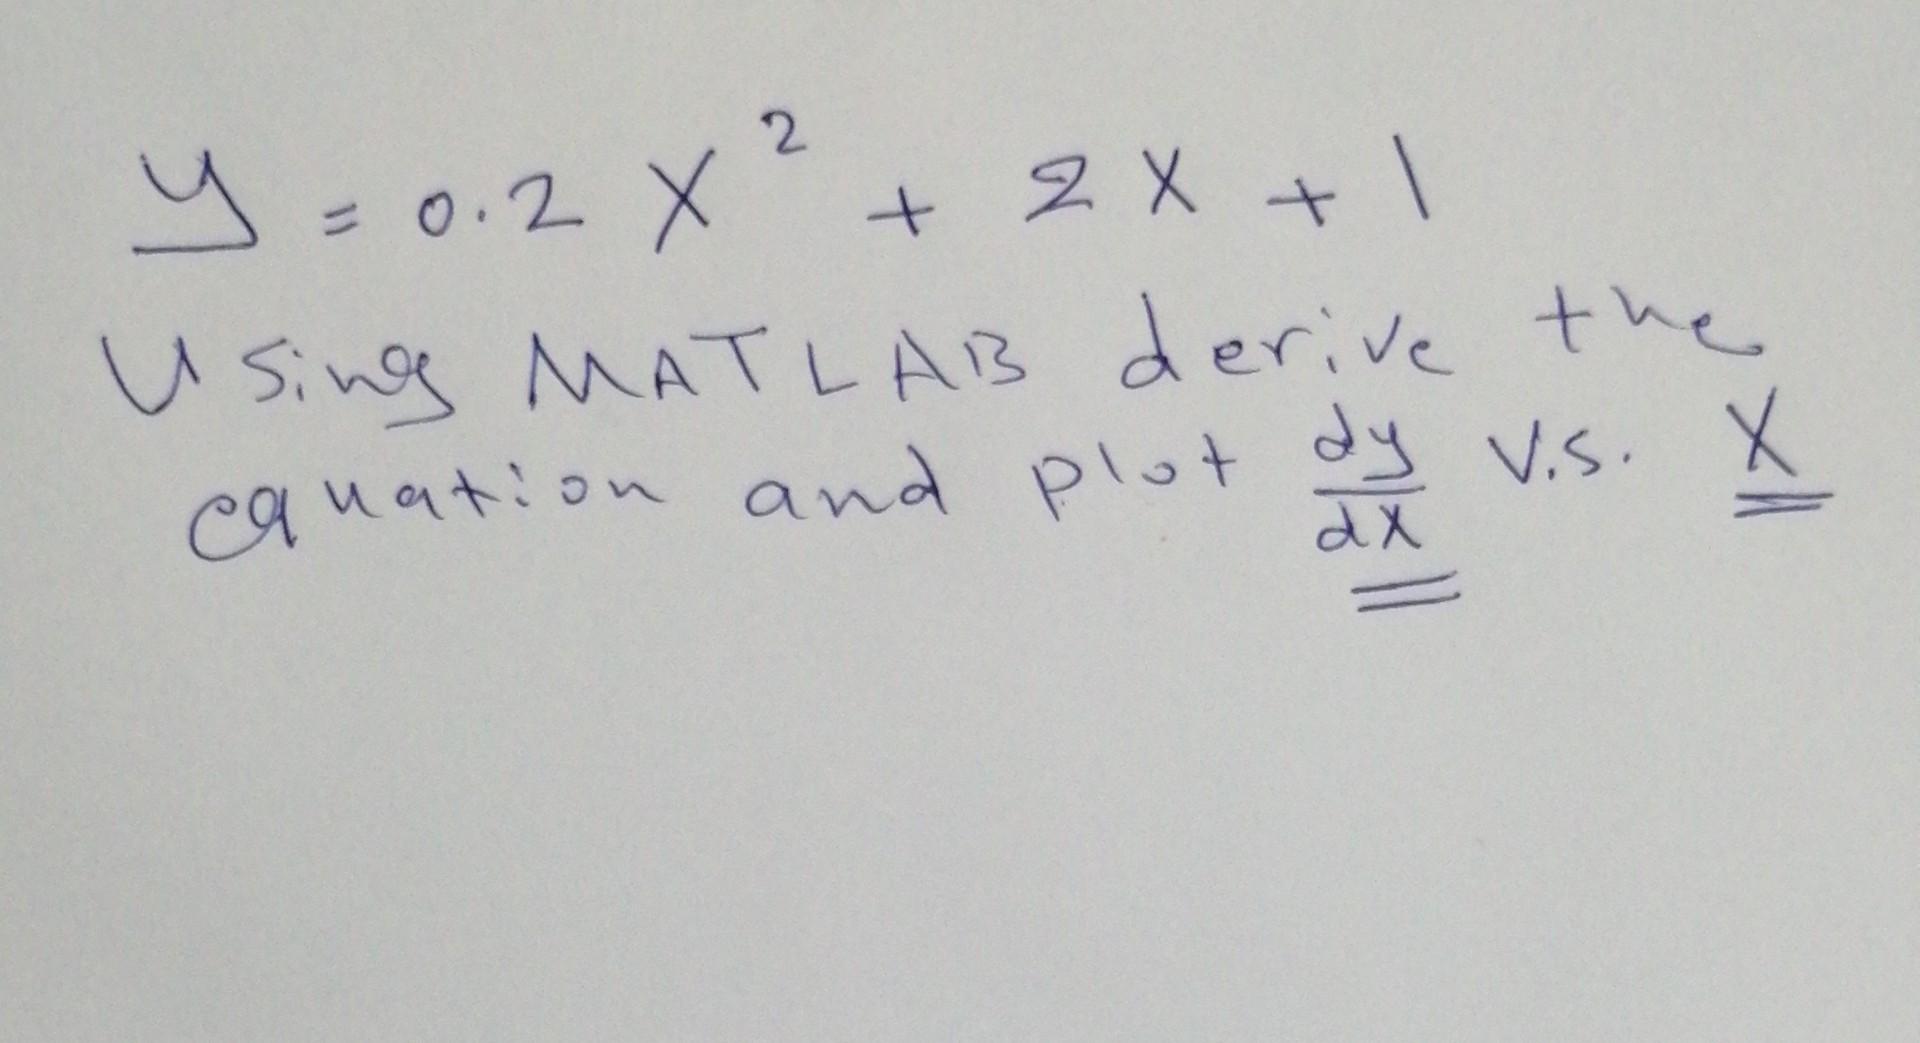 y = 0.2 X² + 2 X + 1
Using MATLAB derive the
equation and plot dy/dx V.S. X